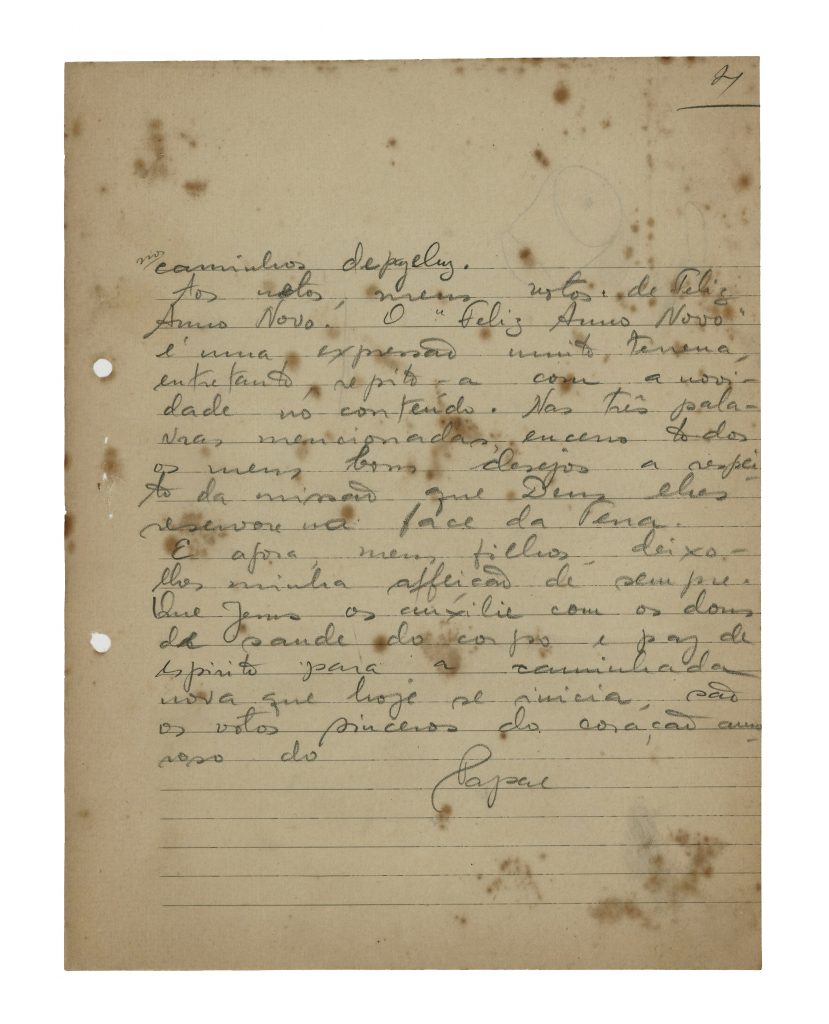 21
nos
caminhos de paz e luz.
Aos netos, meus votos de Feliz
Anno Novo. O "Feliz Anno Novo"
é uma expressão muito terrena,
entretanto repito-a com a novi-
dade no contendo. Nas três pala-
vras mencionadas, encerro todos
os meus bons desejos a respei-
to da missão que Deus lhes
reservou na face da Terra.
E agora, meus filhos, deixo-
lhes minha affeição de sempre.
Que Jesus os auxilie com os dons
de saude do corpo e paz de
espirito para a caminhada
nova que hoje se inicia, são
os votos sinceros do coração amo-
roso do
Papae